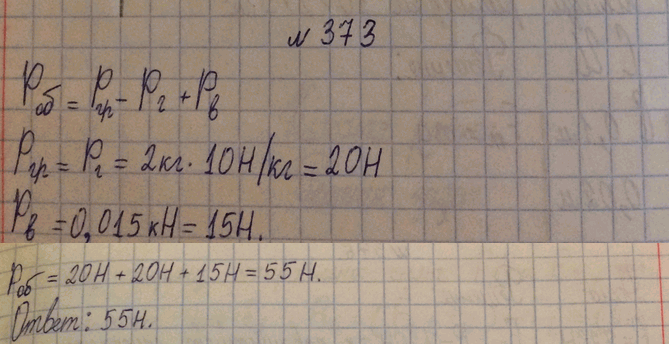 № 373
Pоб = Pгр - Pг + Pв
Pгр = Pг = 2кг · 10Н/кг = 20Н
Pв = 0,015кН = 15Н.
Pоб = 20Н + 20Н + 15Н = 55Н.
Ответ: 55Н.